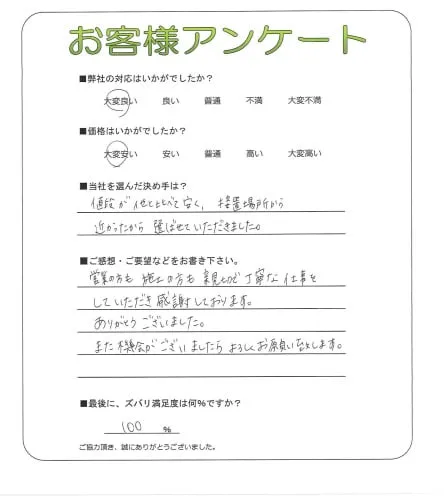 お客様アンケート
■弊社の対応はいかがでしたか？
大変良い 良い 普通 不満 大変不満
■価格はいかがでしたか？
大変安い 安い 普通 高い 大変高い
■当社を選んだ決め手は？
値段が他と比べて安く、設置場所から
近かったから 選ばせていただきました。
■ご感想・ご要望などをお書き下さい。
営業の方も 施工の方も 親切で丁寧な仕事を
していただき 感謝しております。
ありがとうございました。
また機会がございましたら よろしくお願い致します。
■最後に、ズバリ満足度は何%ですか？
100 %
ご協力頂き、誠にありがとうございました。